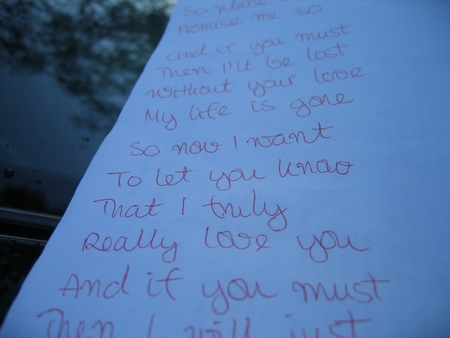 So please
Promise me so
And if you must
Then I'll be lost
Without your love
My life is gone
So now I want
To let you know
That I truly
Really love you
And if you must
Then I will just